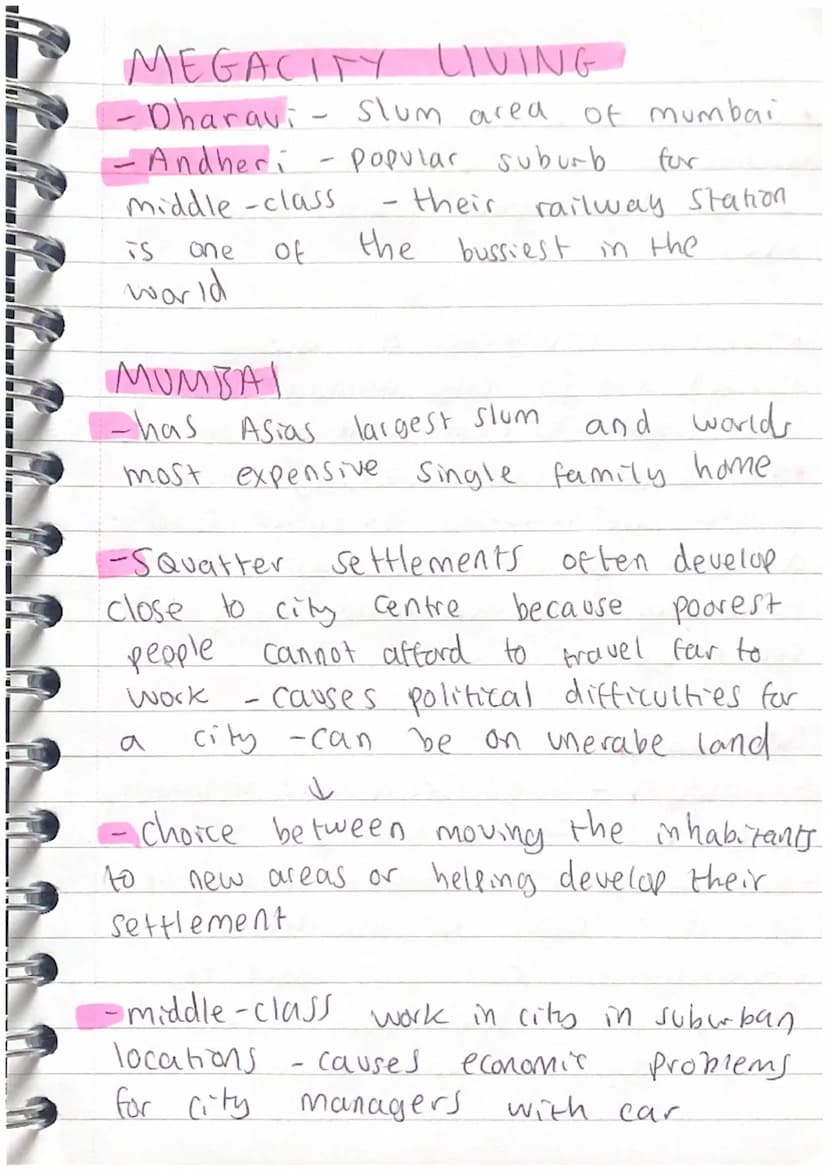 MEGACITY LIVING
- Dharavi - slum area of mumbai
- Andheri - popular suburb for
middle-class - their railway station
is one of the bussiest in the
world
MUMBAI
- has Asias largest slum and worlds
most expensive single family home
- Squatter settlements often develop
close to city centre because poorest
people cannot afford to travel far to
work - causes political difficulties for
a city - can be on unerabe land
↓
- choice between moving the inhabitants
to new areas or helping develop their
settlement
- middle-class work in city in suburban
locations - causes economic problems
for city managers with car